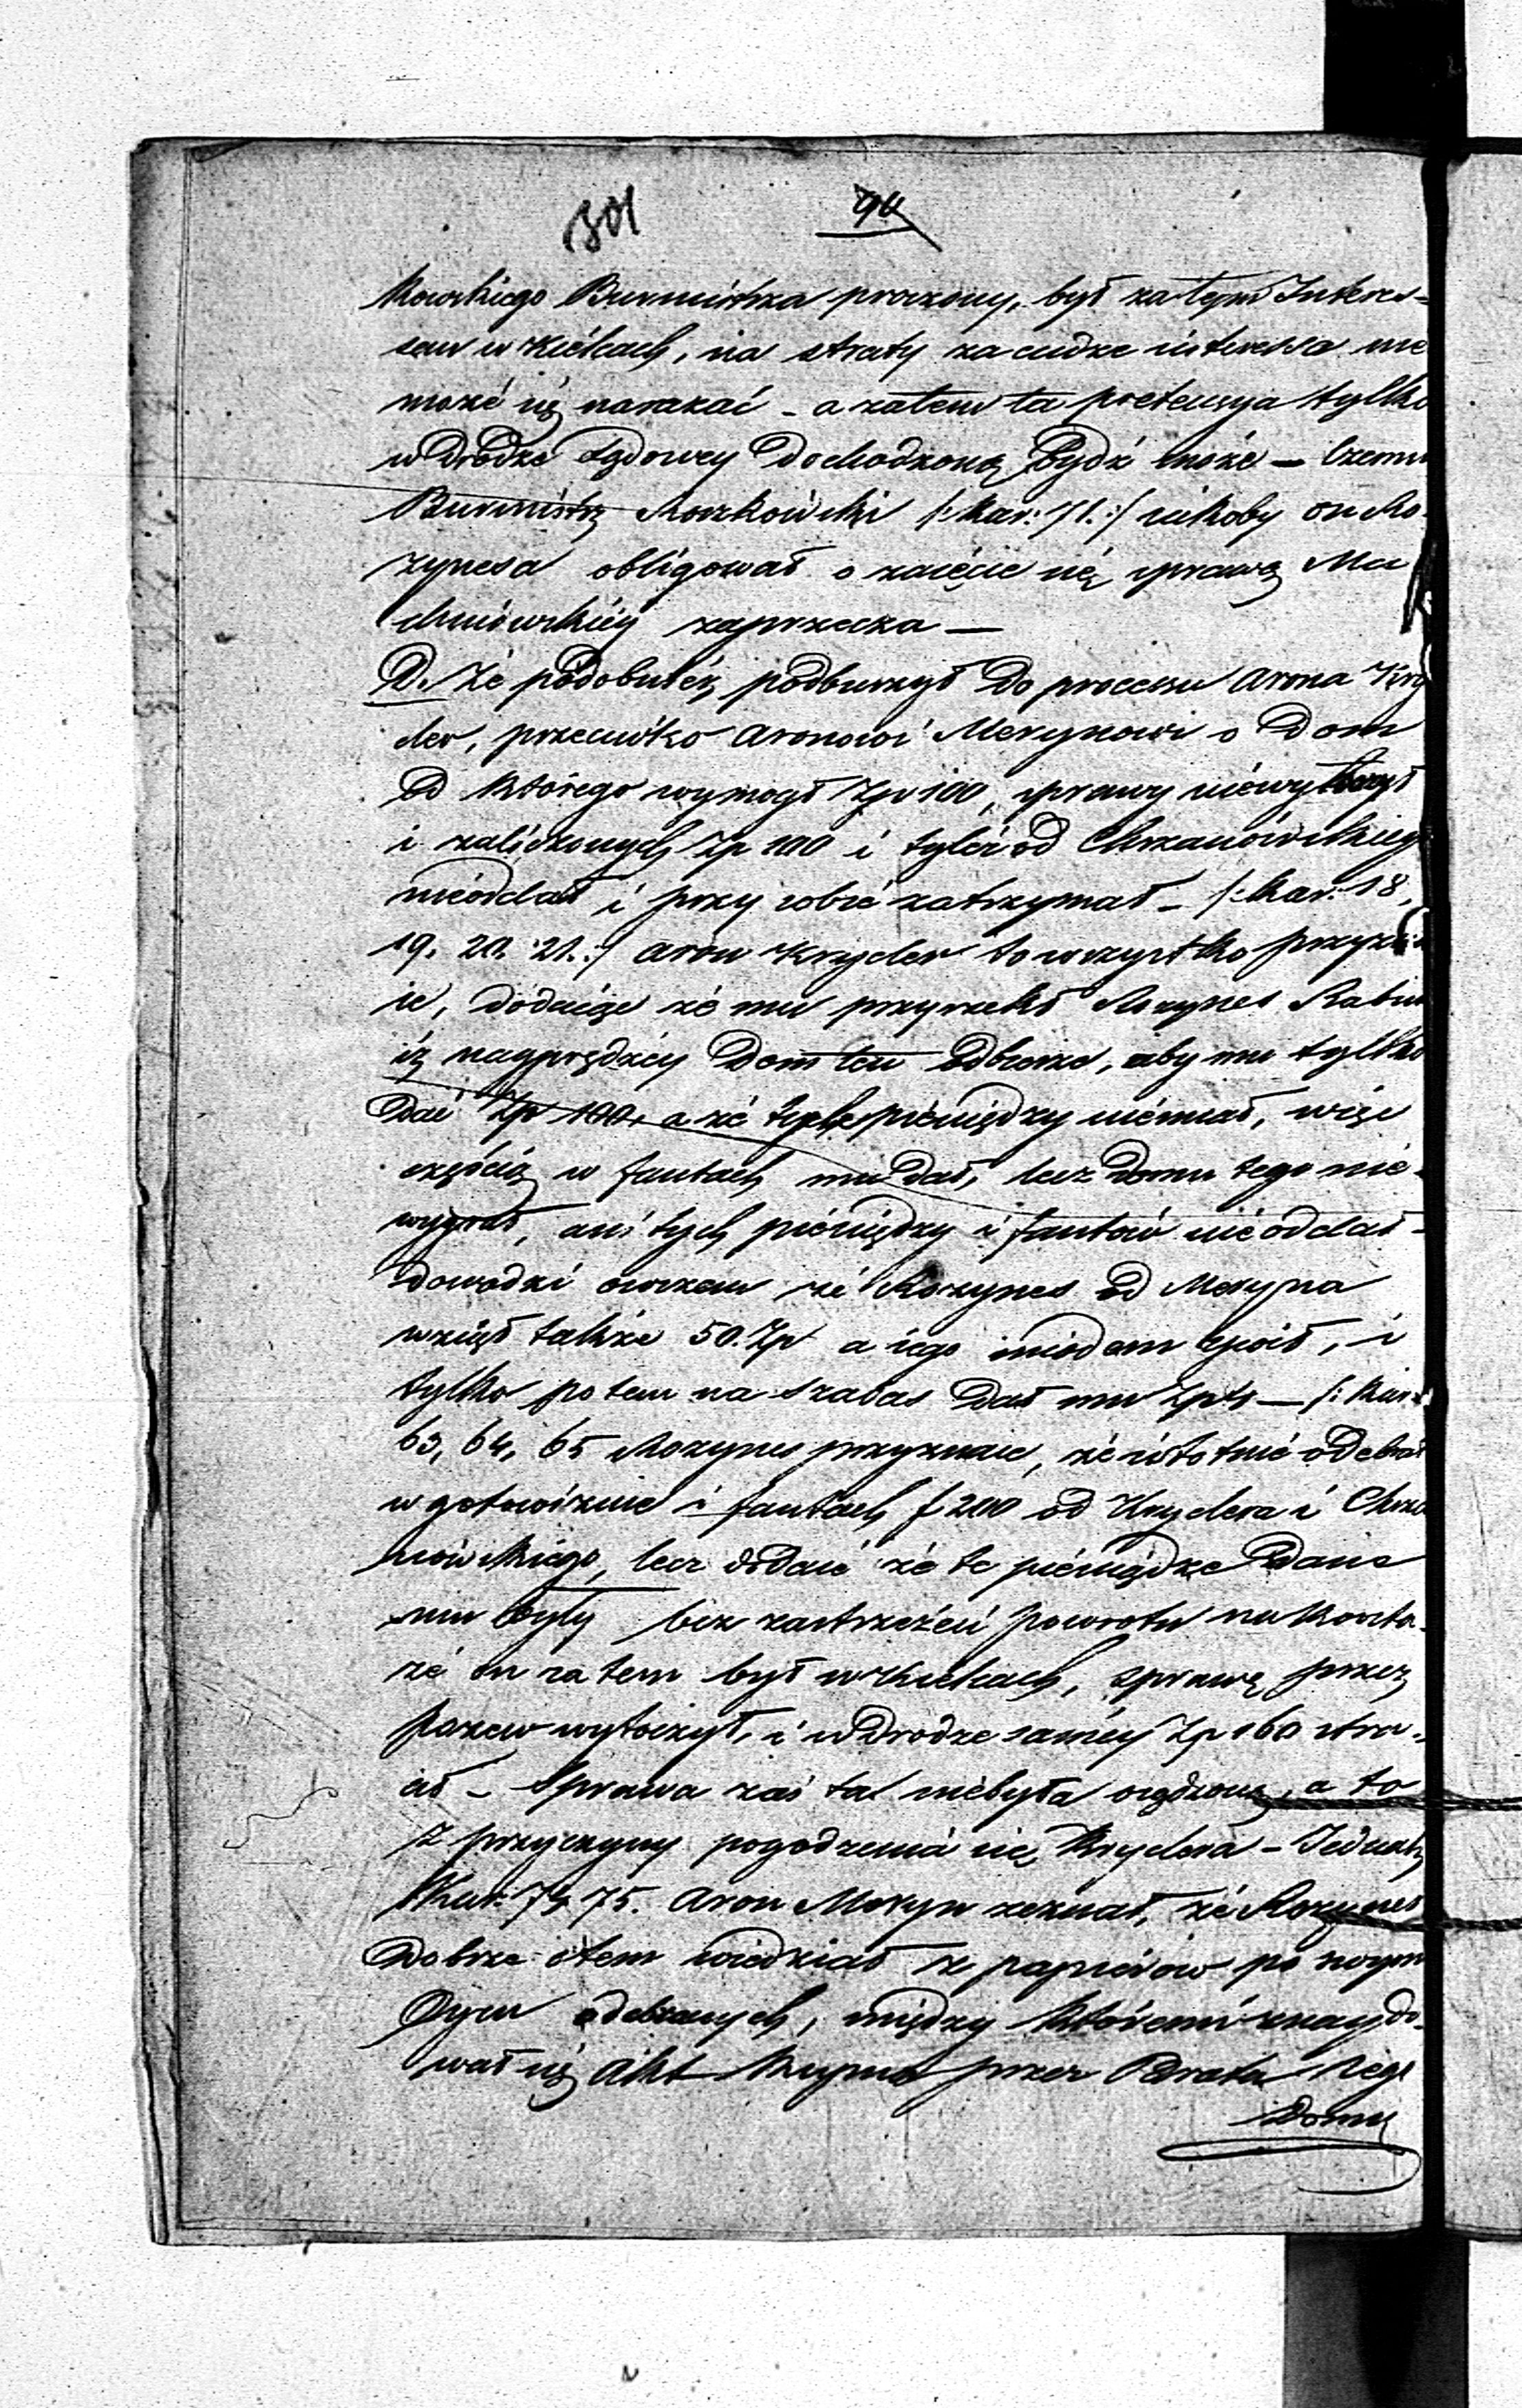 301 90
kowskiego Burmistrza proszony, był za tym Interes-
sem w Kielcach, na straty za cudze interessa nie
może się narażać – a zatem ta pretensya tylko
w drodze Sądowey dochodzoną bydź może – Czemu
Burmistrz Moszkowski /: Kar: 71. :/ iakoby on Ro-
zynesa obligował o zaięcie się sprawą Ma
chniowskiey zaprzecza —
D. Że podobnież podburzył do processu Arona Kry
der, przeciwko Aronowi Merynowi o Dom
od którego wymogł Zp 100, sprawy niewytoczył
i zaliczonych Zp 100 i tyleż od Chrzanowskiego
nieoddał i przy sobie zatrzymał – /: Kar: 18,
19. 20. 21. :/ Aron Kryder to wszystko przyzna
ie, dodaiąc że mu przyrzekł Rozynes Rabin
iż nayprędzey Dom ten odbierze, aby mu tylko
dał Zp 100, a że tyle pieniędzy niemiał, więc
częścią w fantach mu dał, lecz domu tego nie-
wygrał, ani tych pieniędzy i fantów nieoddał –
dowodzi owszem że Rozynes od Meryna
wziął także 50. Zp a iego miodem spoił, i
tylko potem na szabas dał mu Zp 4 — /: Kar:
63, 64, 65 Rozynes przyznaie, że istotnie odebrał
w gotowiznie i fantach f 200 od Krydera i Chrza
nowskiego, lecz dodaie że te pieniądze dane
mu były bez zastrzeżeń powrotu na koszta
że on zatem był w Kielcach, sprawę przez
pozew wytoczył, i w drodze samey Zp 160 stra-
cił – Sprawa zaś ta niebyła osądzoną, a to
z przyczyny pogodzenia się Krydera – Jednak
Kar: 74, 75. Aron Meryn zeznał, że Rozynes
dobrze o tem wiedział z papierów po swym
Oycu odebranych, między któremi znaydo-
wał się Akt Kupna przez Brata tego
domu